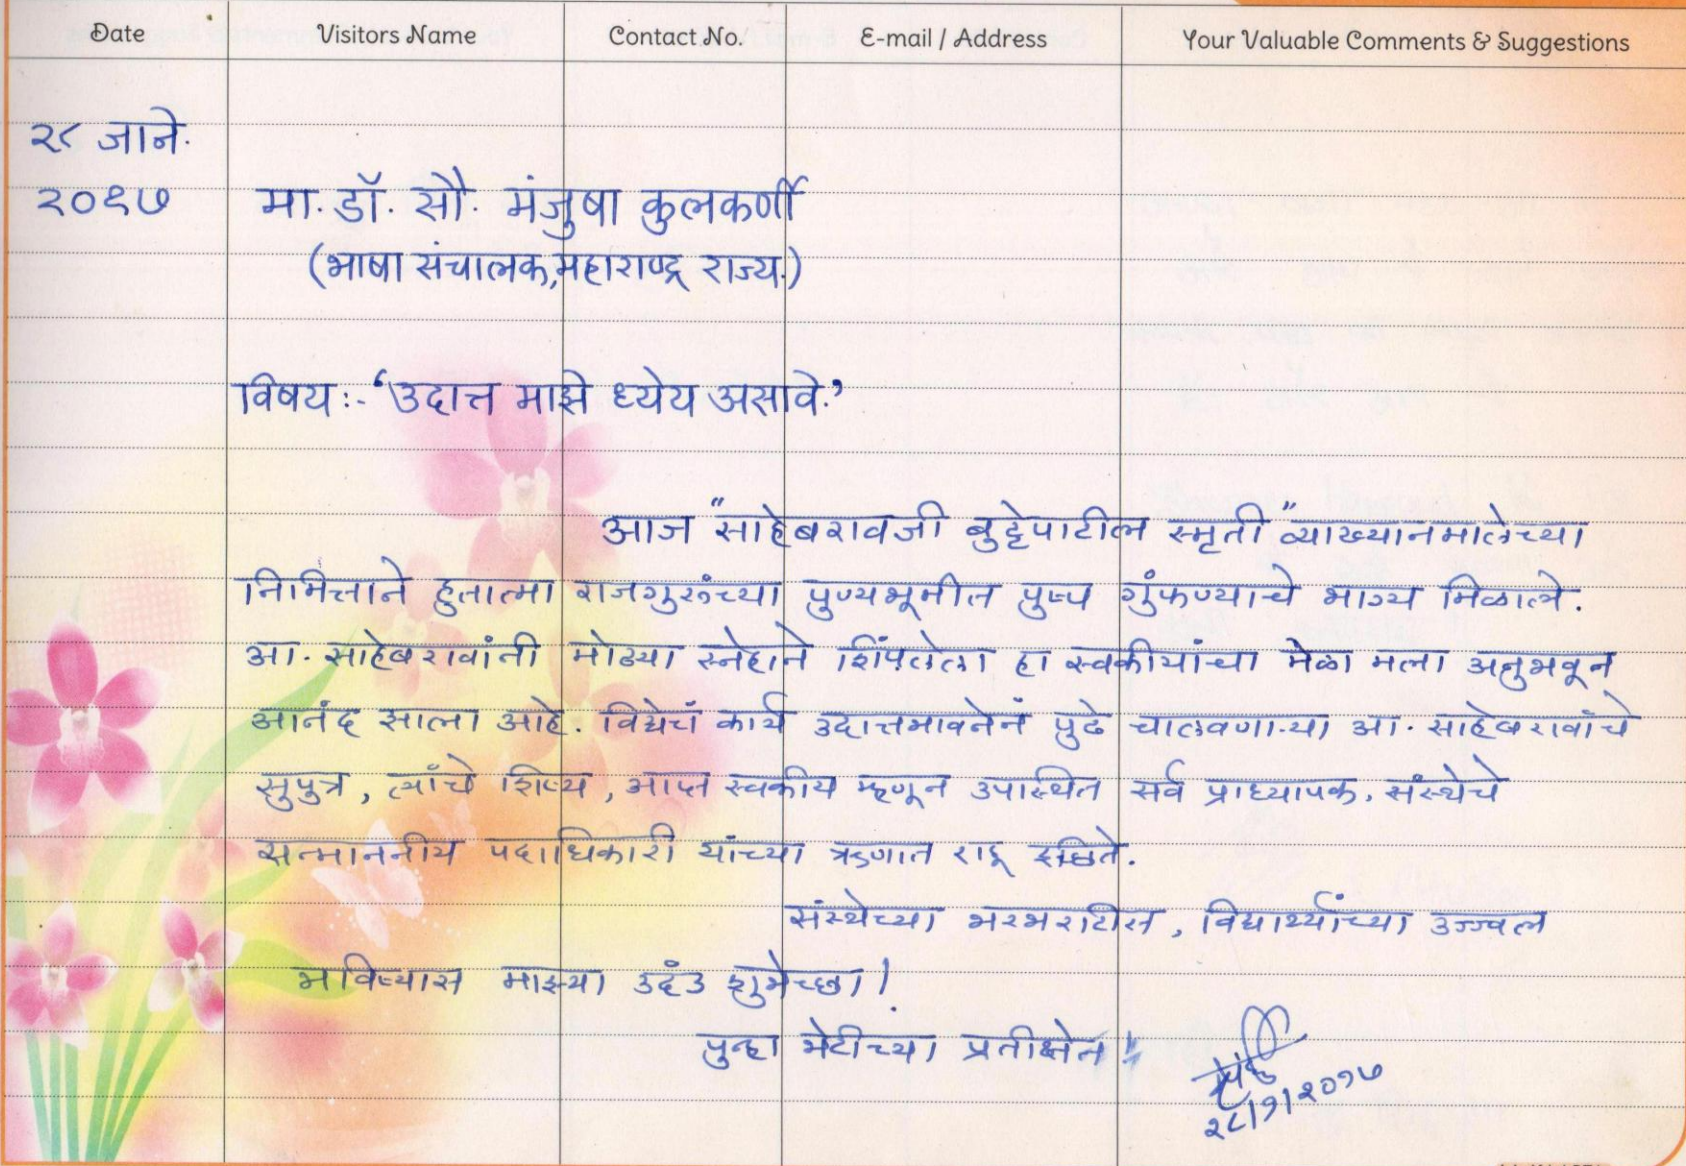 Date Visitors Name Contact No. E-mail / Address Your Valuable Comments & Suggestions
२८ जाने.
२०१७ मा. डॉ. सौ. मंजुषा कुलकर्णी
(भाषा संचालक, महाराष्ट्र राज्य.)
विषय :- 'उदात्त माझे ध्येय असावे.'
आज "साहेबरावजी बुट्टेपाटील स्मृती" व्याख्यानमालेच्या
निमित्ताने हुतात्मा राजगुरुंच्या पुण्यभूमीत पुष्प गुंफण्याचे भाग्य मिळाले.
आ. साहेबरावांनी मोठ्या स्नेहाने शिंपलेला हा स्वकीयांचा मेळा मला अनुभवून
आनंद झाला आहे. विद्येचं कार्य उदात्तभावनेनं पुढे चालवणाऱ्या आ. साहेबरावांचे
सुपुत्र, त्यांचे शिष्य, आप्त स्वकीय म्हणून उपस्थित सर्व प्राध्यापक, संस्थेचे
सन्माननीय पदाधिकारी यांच्या ऋणात राहू इच्छिते.
संस्थेच्या भरभराटीस, विद्यार्थ्यांच्या उज्ज्वल
भविष्यास माझ्या उदंड शुभेच्छा!
पुन्हा भेटीच्या प्रतीक्षेत!!
२८/१/२०१७